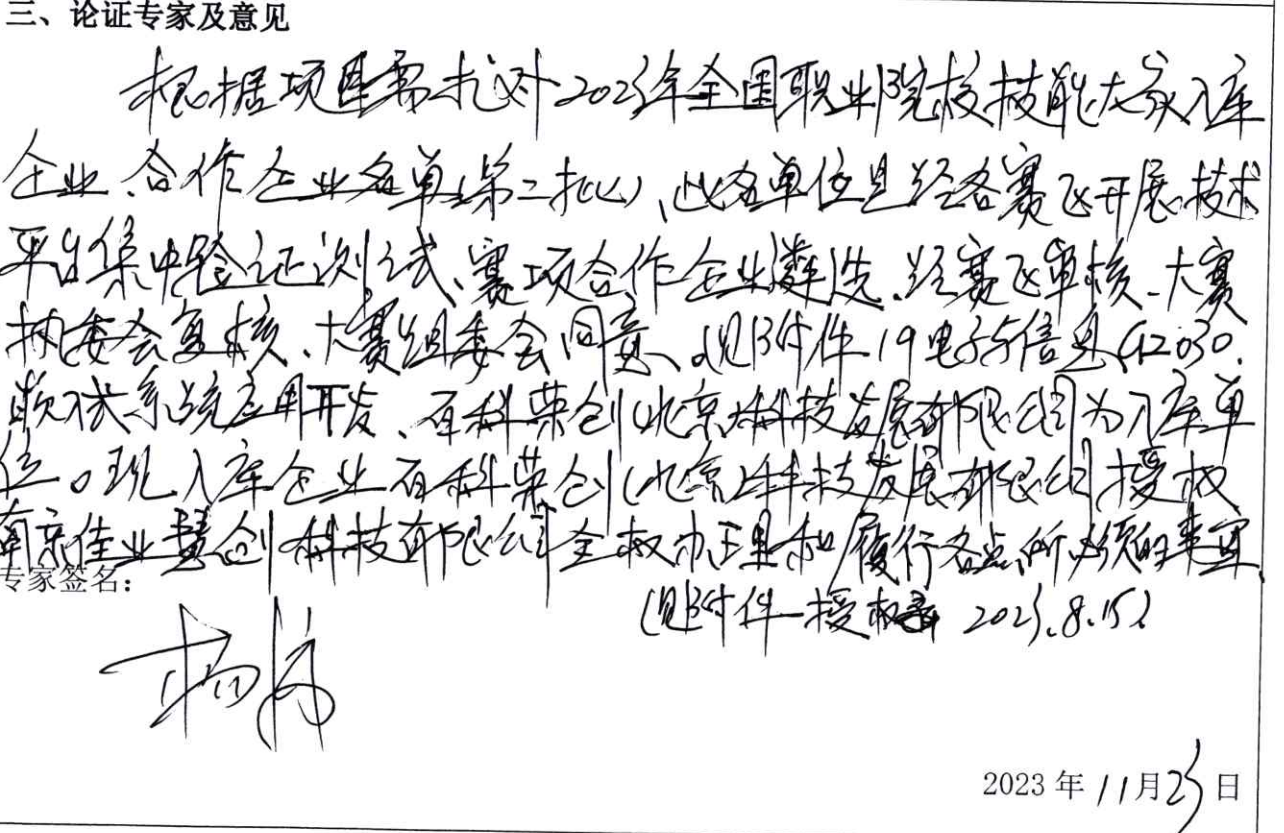 三、论证专家及意见
根据项目需求对2023年全国职业院校技能大赛入库
企业、合作企业名单(第二批)、此名单位是经各赛区开展技术
平台集中验证测试、赛项合作企业遴选、经赛区审核、大赛
执委会复核、大赛组委会同意、(见附件19电子与信息GZ030.
嵌入式系统应用开发、百科荣创(北京)科技发展有限公司为入库单
位。现入库企业百科荣创(北京)科技发展有限公司授权
南京佳业慧创科技有限公司全权办理和履行各点所必须的事宜.
专家签名:
(见附件一授权书 2023.8.15)
杨
2023年11月23日